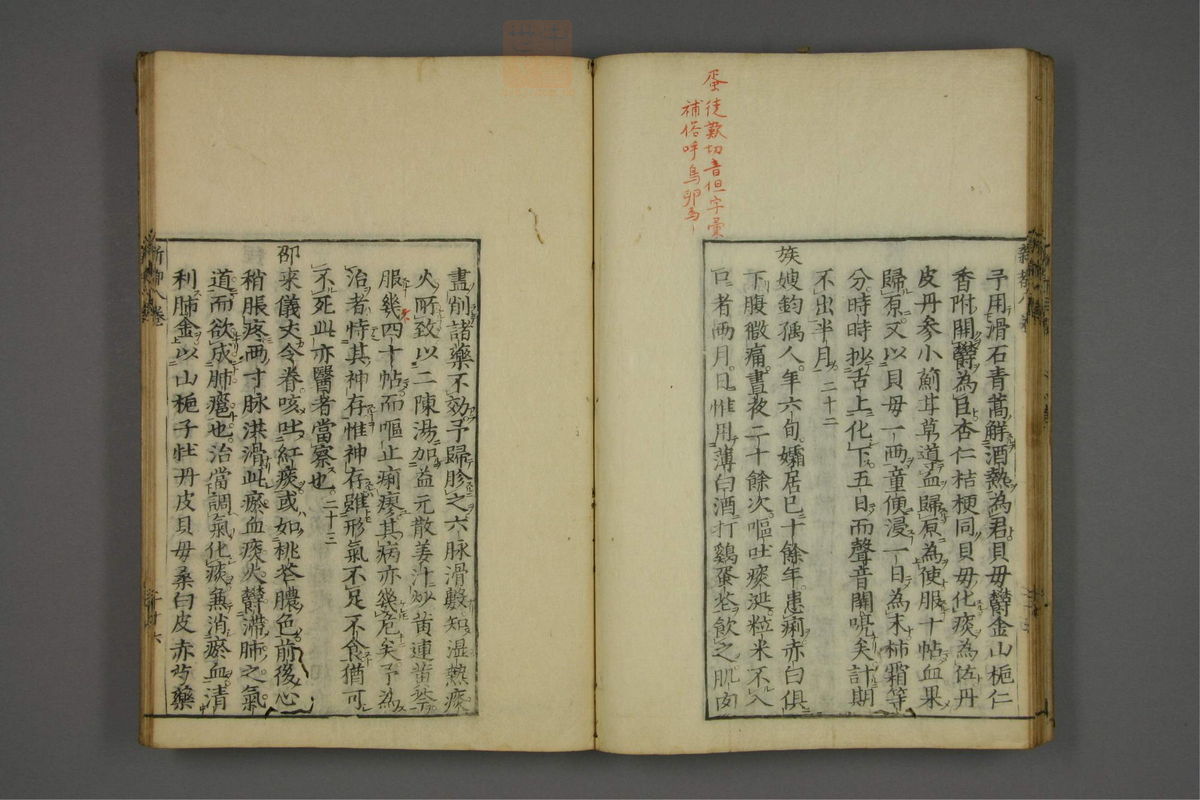 蛋 徒歎切音但字彙
補俗呼鳥卵為
子用滑石青蒿鮮酒熱為君貝毋欝金山梔仁
香附開欝為臣杏仁桔梗同貝毋化痰為佐丹
皮丹参小薊茸草道盂歸尾為使服十帖血果
歸原又以貝毋一両童便浸一日為末柿霜等
分時時抄舌上化下五日而聲音開喨矣計期
不出半月 二十二
族嫂鈞孺人年六旬孀居巳十餘年患痢赤白俱
下腹徹痛晝夜二十餘次嘔吐痰涎粒米不入
口者両月日惟用薄白酒打鷄蛋花飲之肌肉
盡削諸藥不効予歸胗之六脉滑數知湿熱痰
火所致以二陳湯加益元散姜汁炒黄連黄芩
服幾四十帖而嘔止痢瘳其病亦幾危矣予為
治者恃其神存惟神存雖形氣不足不食猶可
不死此亦醫者當察也 二十三
邵来儀丈令眷咳吐紅痰或如桃花膿色前後心
稍脹疼両寸脉洪滑此瘀血痰火欝滯肺之氣
道而欲成肺癰也治當調氣化痰兼消瘀血清
利肺金以山梔子牡丹皮貝毋桑白皮赤芍藥